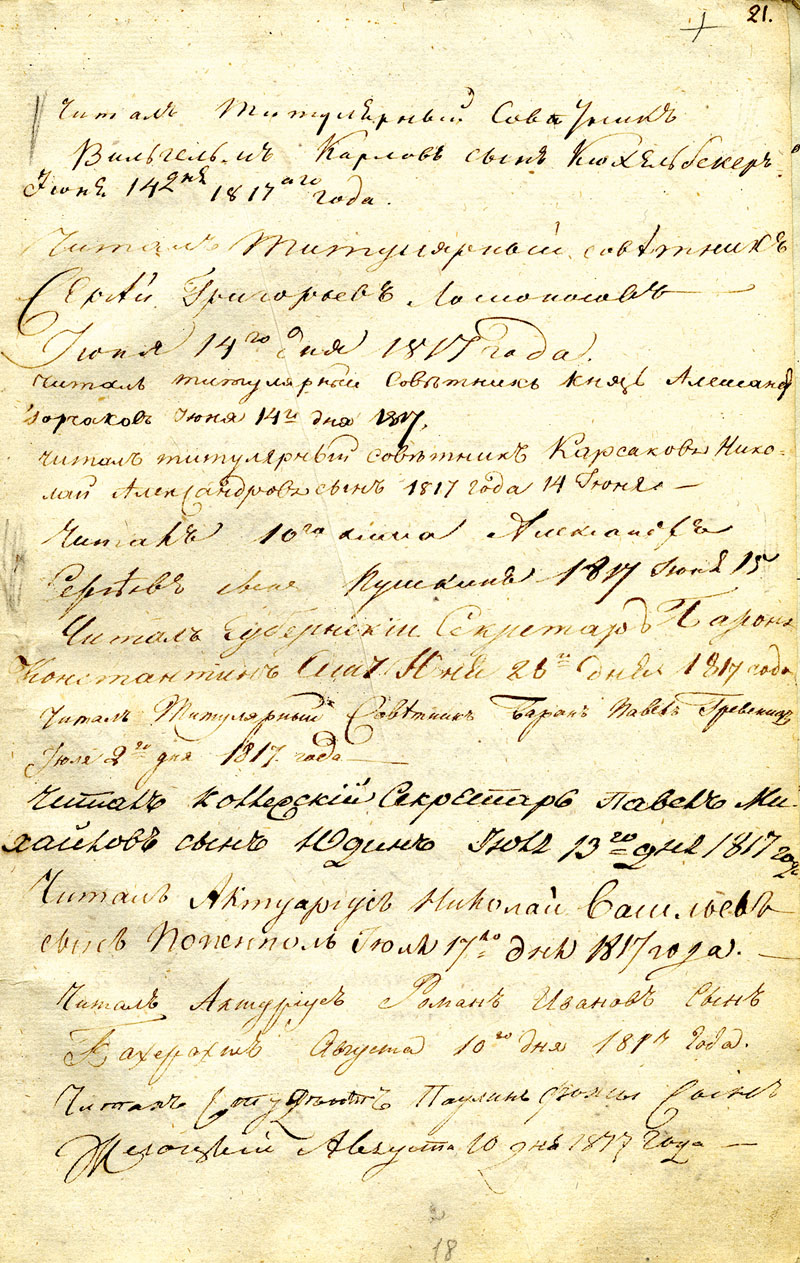 21.
Читалъ Титулярный Совѣтникъ
Вильгельмъ Карловъ сынъ Кюхельбекеръ.
Іюня 14 дня 1817аго года.
Читалъ Титулярный совѣтникъ
Сергѣй Григорьевъ Ломоносовъ
Іюня 14го дня 1817 года.
Читалъ титулярный Совѣтникъ князь Александ
Горчаковъ Іюня 14го дня 1817.
Читалъ титулярный совѣтникъ Карсаковъ Нико-
лай Александровъ сынъ 1817 года 14 Іюня. —
Читалъ 10го класса Александръ
Сергѣевъ сынъ Пушкинъ 1817 Іюня 15
Читалъ Губернскій Секретарь Баронъ
Константинъ Юня 28го дня 1817 года
Читалъ Титулярный Совѣтникъ Баронъ Павелъ Гревеницъ
Іюля 2го дня 1817. года —
Читалъ Коллежскій Секретарь Павелъ Ми-
хайловъ сынъ Юдинъ Іюля 13го дня 1817 года
Читалъ Актуаріусъ Николай Васильевъ
сынъ Попенполь Іюля 17го дня 1817 года. —
Читалъ Актуріусъ Романъ Ивановъ Сынъ
Бахерахтъ Августа 10го дня 1817 года.
Читалъ Студентъ Паулинъ Фомы Сынъ
Августа 10 дня 1817 года —
18